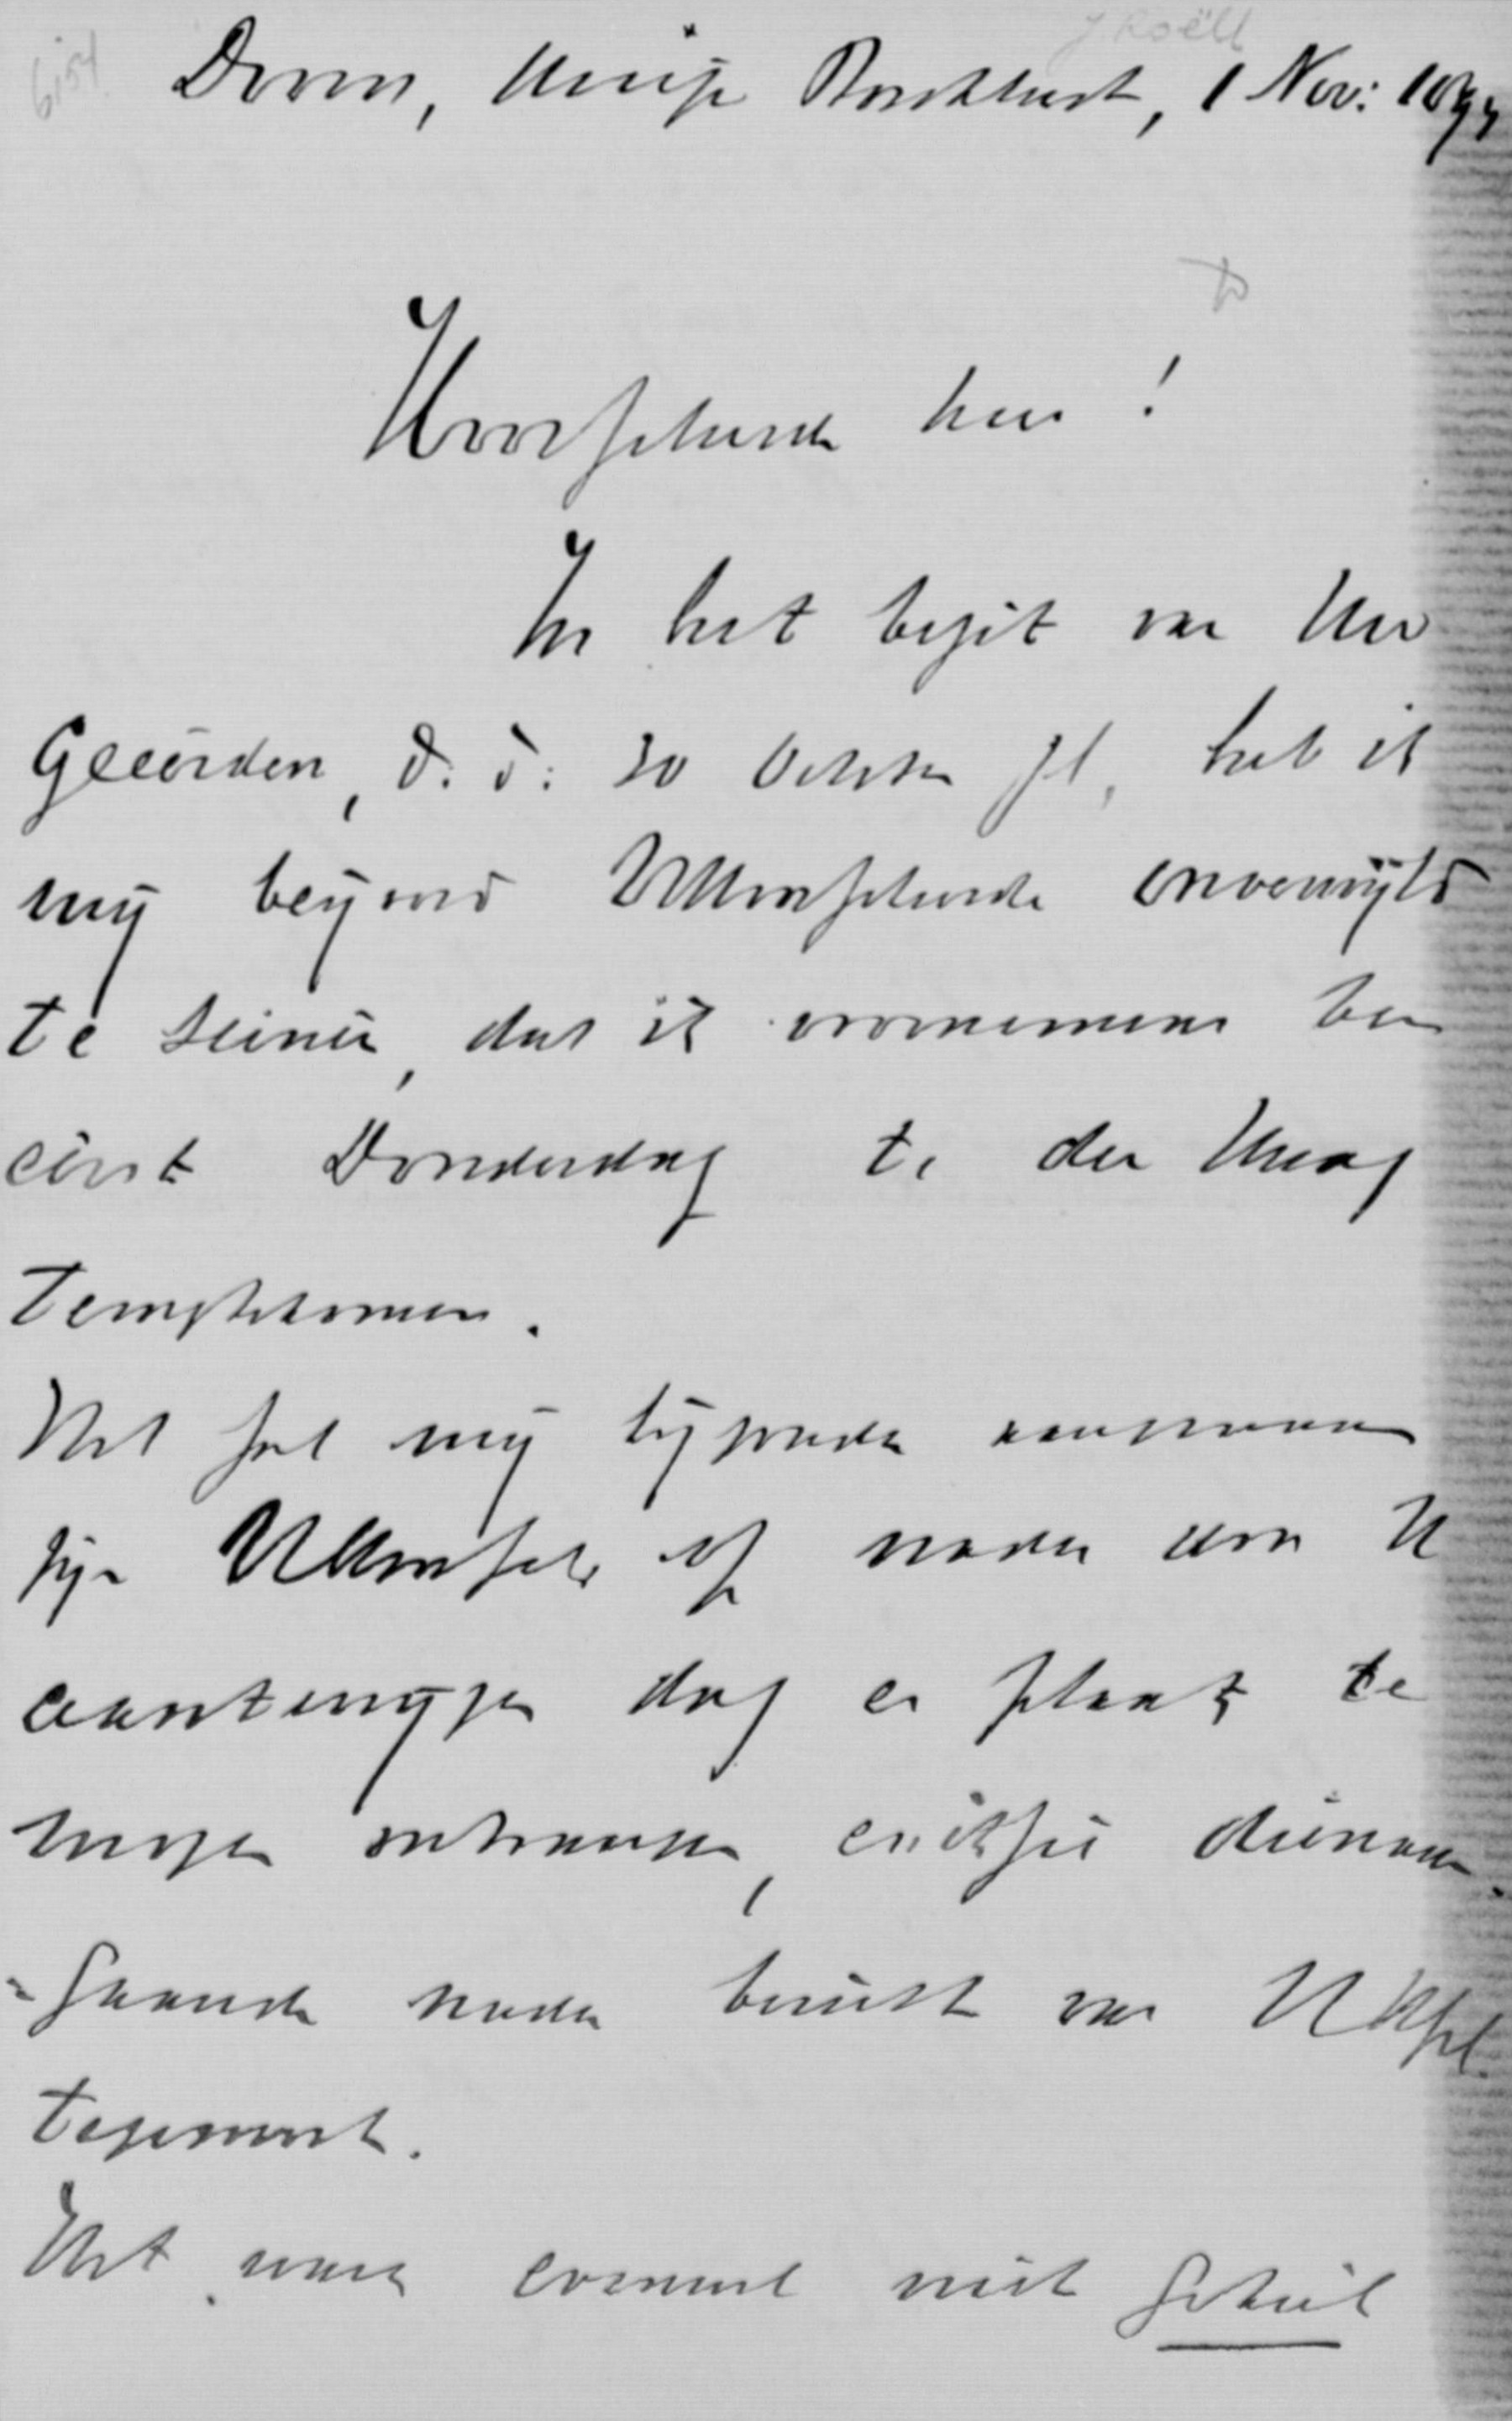 J Röell
6154
Doorn, Huize Boschlust, 1 Nov: 1897
Hooggeleerde heer!
In het bezit van Uw
Geëerden, d. d. 30 October jl, heb ik
mij beijverd UHooggeleerde onverwijld
te seinen, dat ik voornemens ben
eerst Donderdag te den Haag
terug te komen.
Het zal mij bijzonder aangenaam
zijn UHooggel. op nader door U
aantewijzen dag en plaats te
mogen ontvangen, en ik zie dienaan-
-gaande nader bericht van UHgel.
tegemoet.
Het ware evenwel niet geheel